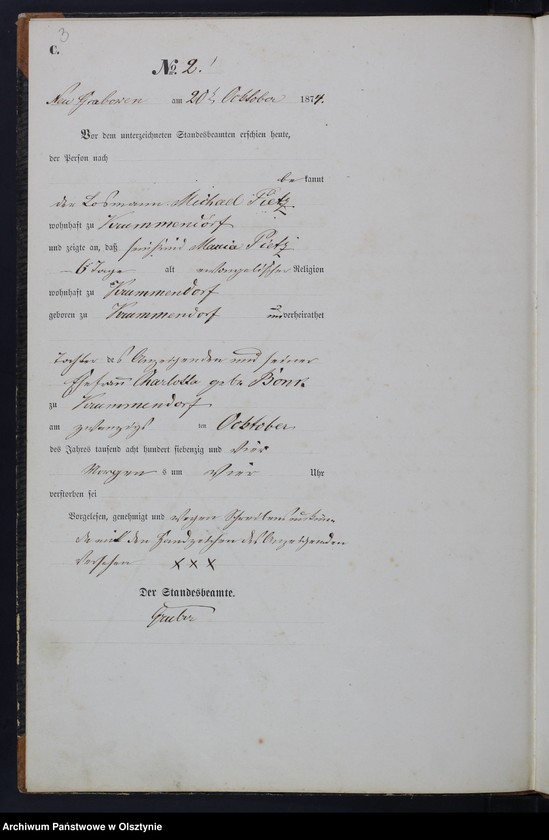 3
C.
No. 2.
Neu Grabowen am 20t October 1874.
Vor dem unterzeichneten Standesbeamten erschien heute,
der Person nach
be kannt
der Losmann Michael Pietz
wohnhaft zu Krummendorf
und zeigte an, daß sein Kind Maria Pietz
6 Tage alt evangelischer Religion
wohnhaft zu Krummendorf
geboren zu Krummendorf unverheirathet
Tochter des Anzeigenden und seiner
Ehefrau Charlotta geb.
zu Krummendorf
am zwanzigs ten Ochtober
des Jahres tausend acht hundert siebenzig und vier
Morgen s um vier Uhr
verstorben sei
Vorgelesen, genehmigt und wegen Schreibensunkun-
de mit den Handzeichen des Anzeigenden
versehen xxx
Der Standesbeamte.
Archiwum Państwowe w Olsztynie